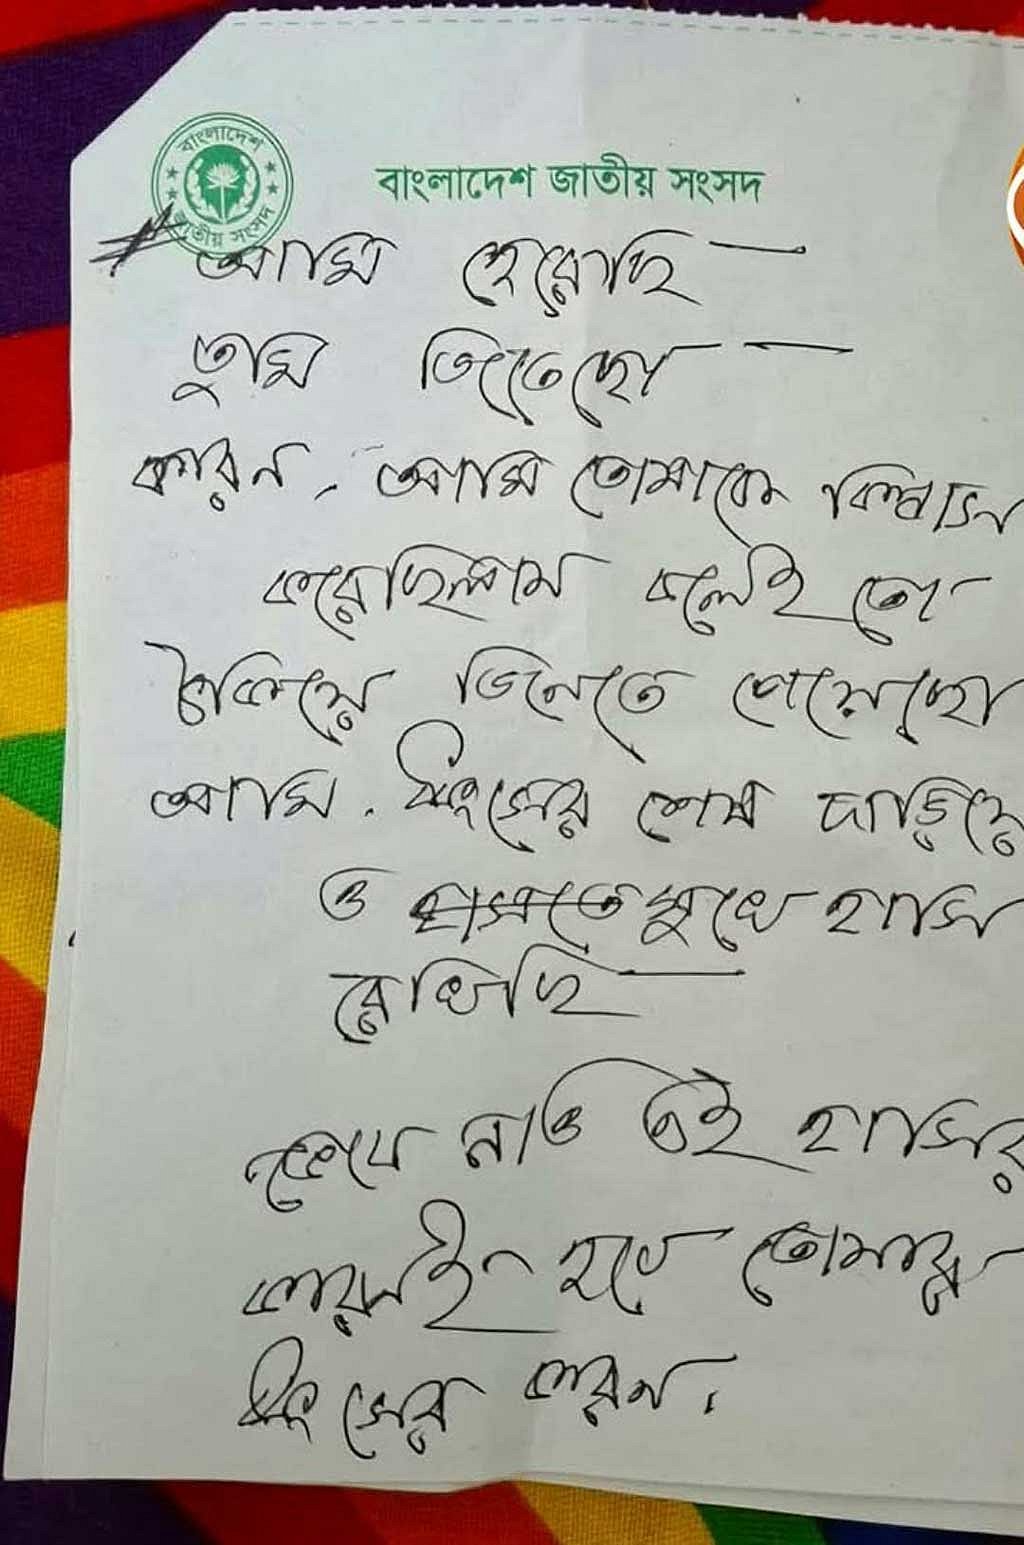 বাংলাদেশ
জাতীয় সংসদ
বাংলাদেশ জাতীয় সংসদ
আমি হেরেছি —
তুমি জিতেছো —
কারন, আমি তোমাকে বিশ্বাস
করেছিলাম বলেই তো
ঠকিয়ে জিততে পেরেছো
আমি. ধ্বংসের শেষ দাড়িয়ে
ও হাসতে মুখে হাসি
রেখেছি —
জেনে নাও এই হাসির
কারনই হবে তোমার
ধ্বংসের কারন.